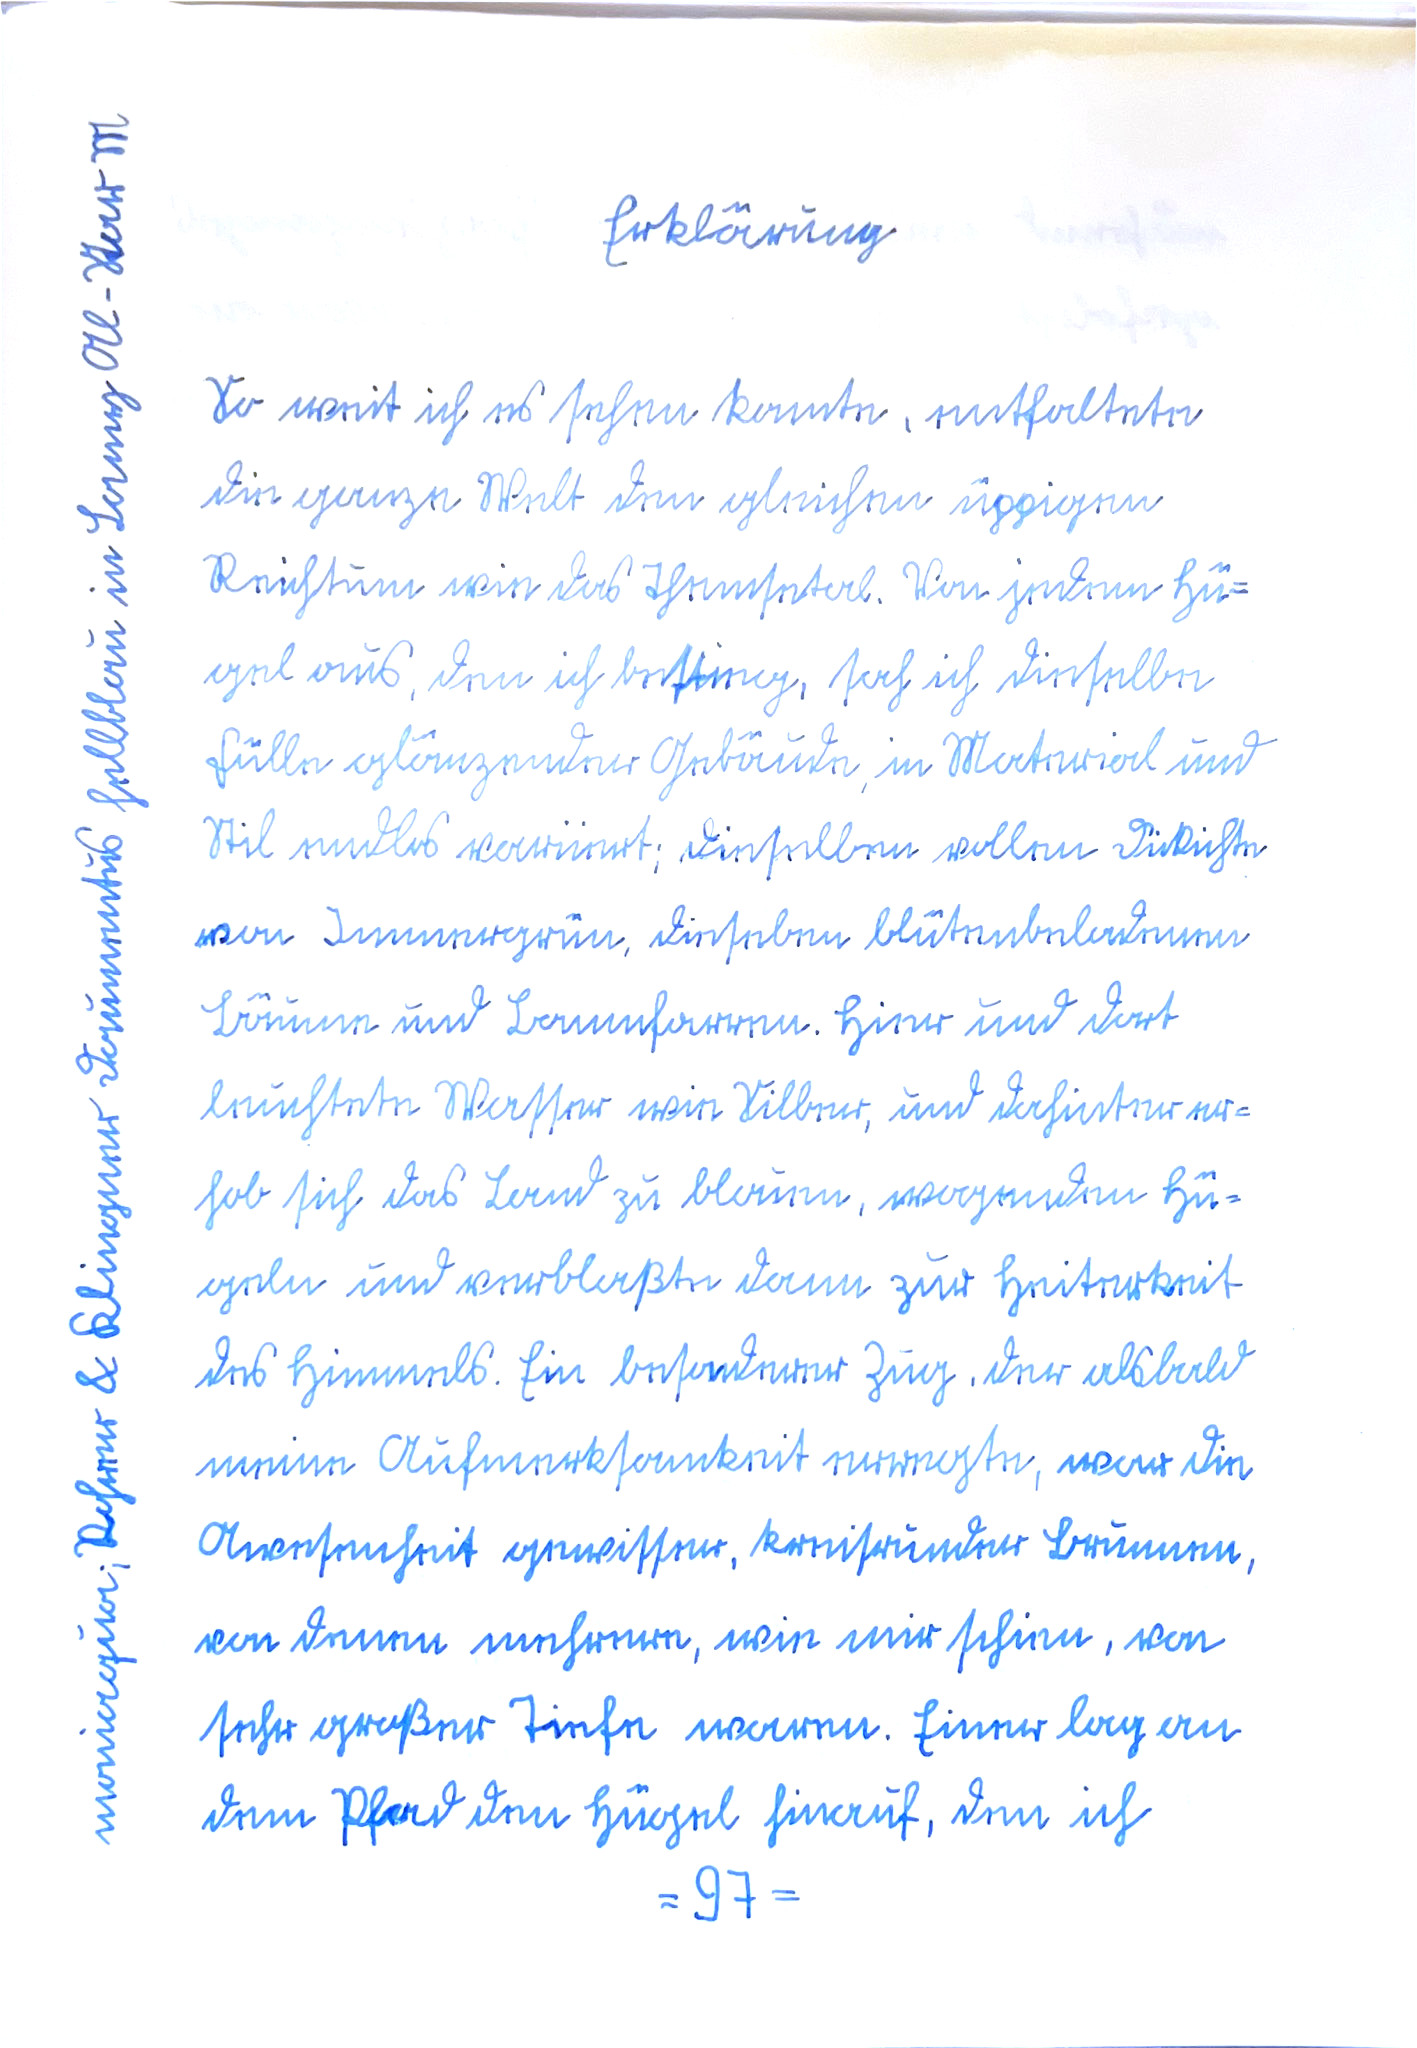 Erklärung
So weit ich es sehen konnte, entfaltete
die ganze Welt den gleichen üppigen
Reichtum wie das Themsetal. Von jedem Hü=
gel aus, den ich bestieg, sah ich dieselbe
Fülle glänzender Gebäude, in Material und
Stil endlos variiert; dieselben vollen Dickichte
von Immergrün, dieseben blütenbeladenen
Bäume und Baumfarren. Hier und dort
leuchtete Wasser wie Silber, und dahinter er=
hob sich das Land zu blauen, wogenden Hü=
geln und verblaßte dann zur Heiterkeit
des Himmels. Ein besonderer Zug, der alsbald
meine Aufmerksamkeit erregte, war die
Anwesenheit gewisser, kreisrunder Brunnen,
von denen mehrere, wie mir schien, von
sehr großer Tiefe waren. Einer lag an
dem Pfad den Hügel hinauf, den ich
= 97 =
Rohrer & Klingner Dokumentus hellblau in Lamy Al-Star M